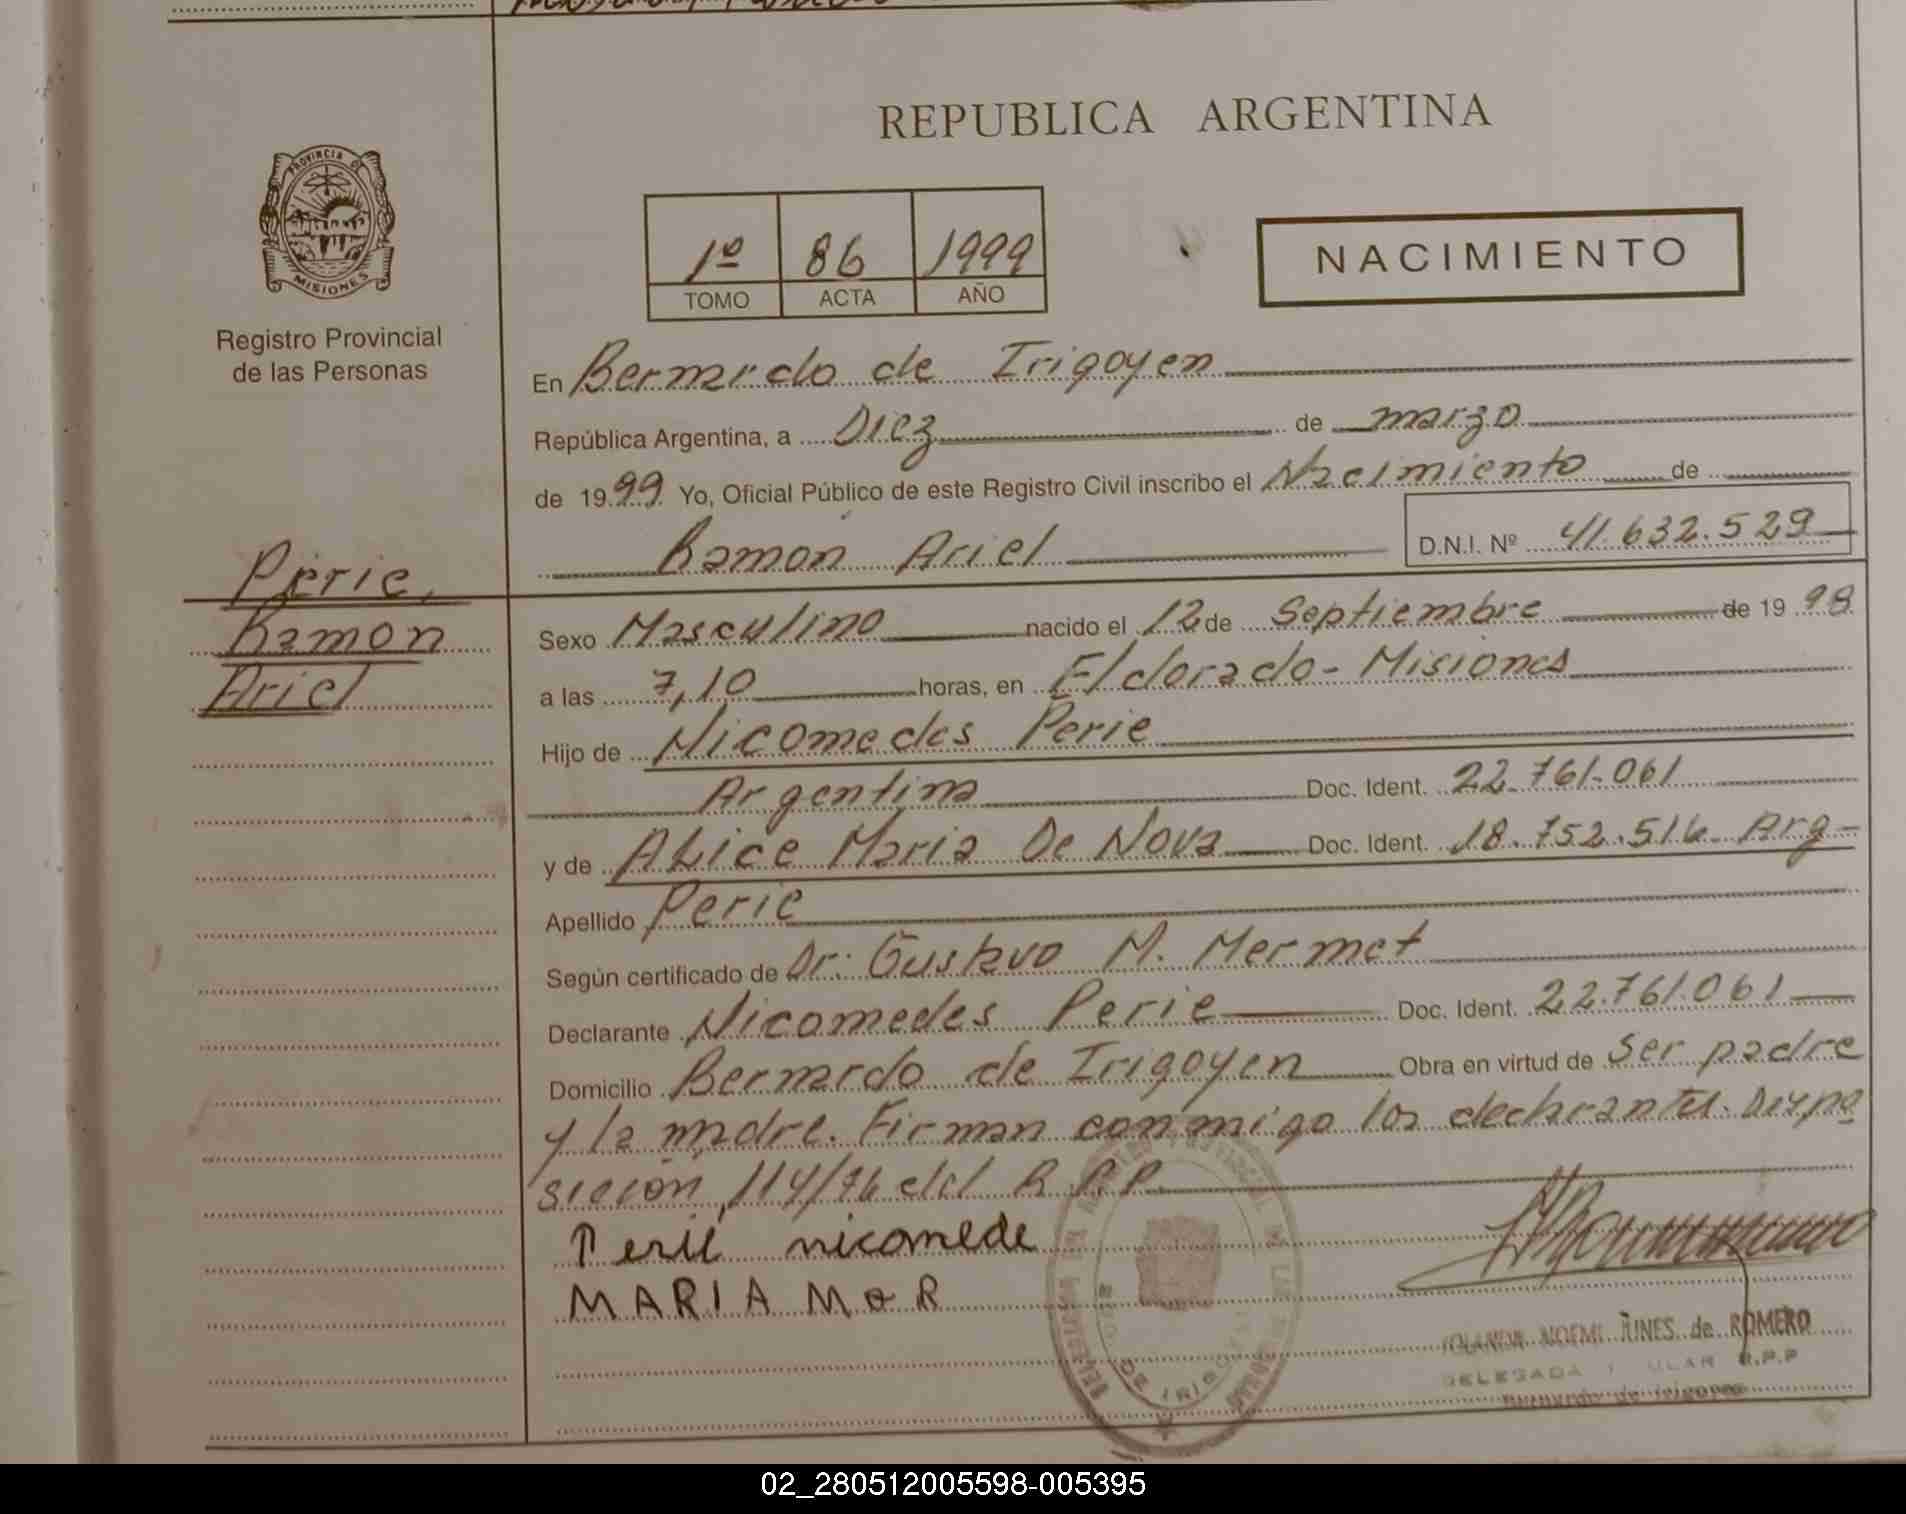 REPUBLICA ARGENTINA
PROVINCIA DE
MISIONES
Registro Provincial
de las Personas
1º 86 1999
TOMO ACTA AÑO
NACIMIENTO
En Bernardo de Irigoyen
República Argentina, a Diez de marzo
de 1999 Yo, Oficial Público de este Registro Civil inscribo el Nacimiento de
Ramon Ariel D.N.I. Nº 41.632.529
Perie,
Ramon
Ariel
Sexo Masculino nacido el 12 de Septiembre de 1998
a las 7,10 horas, en Eldorado - Misiones
Hijo de Nicomedes Perie
Argentina Doc. Ident. 22.761.061
y de Alice Maria De Nova Doc. Ident. 18.752.516 Arg-
Apellido Perie
Según certificado de Dr. Gustavo M. Mermet
Declarante Nicomedes Perie Doc. Ident. 22.761.061
Domicilio Bernardo de Irigoyen Obra en virtud de Ser padre
y la madre. Firman conmigo los declarantes. Dispo
sición 114/76 del R.P.P.
Perié nicomede
MARIA MOR
NOEMI de ROMERO
DELEGADA R.P.P
Bernardo de Irigoyen
02_280512005598-005395